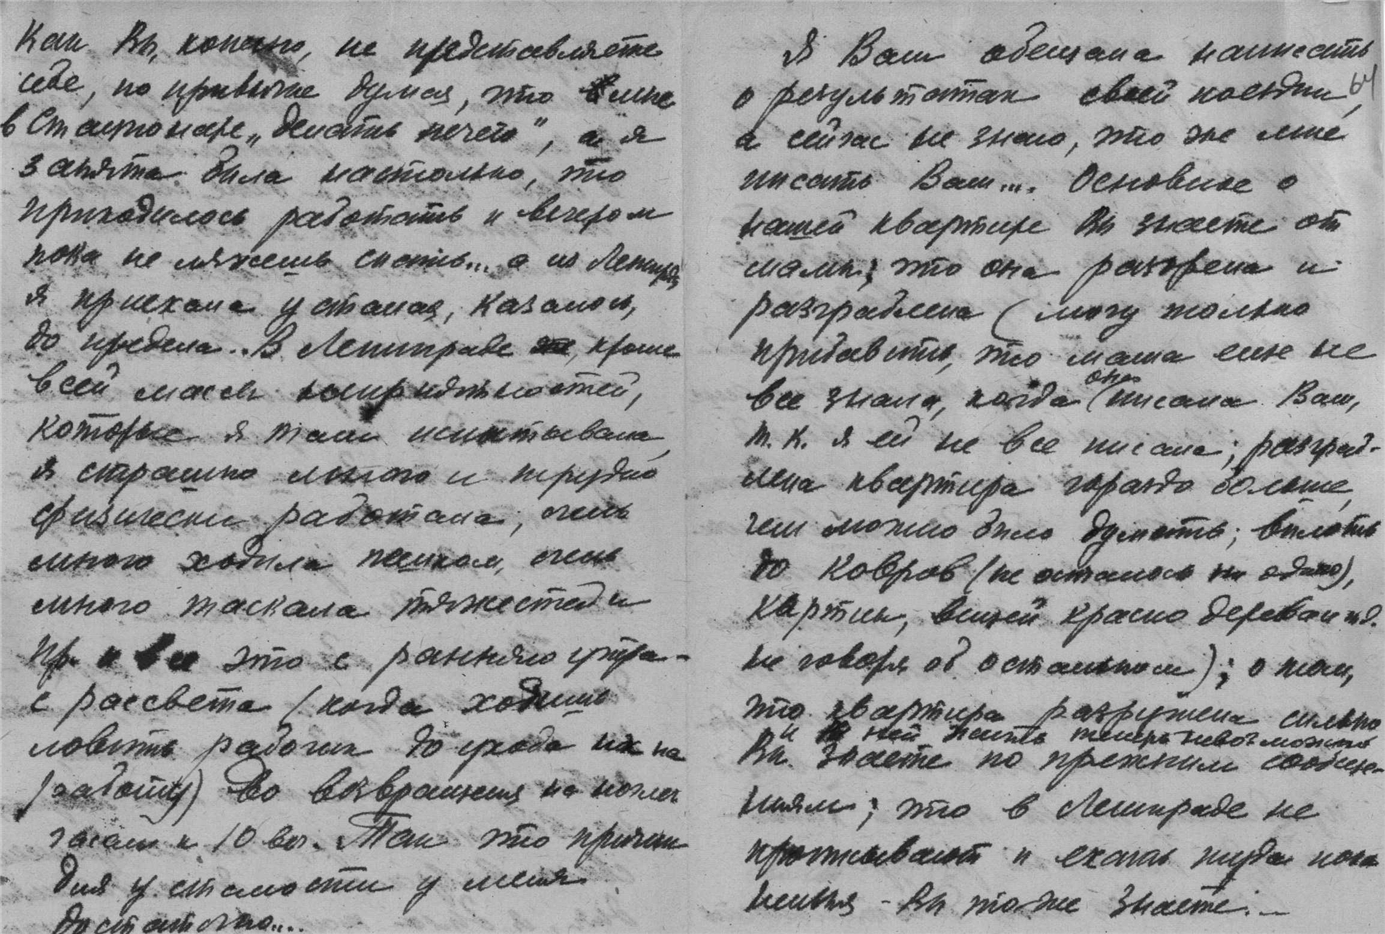 Как Вы, конечно, не представляете
себе, по привычке думая, что мне
в Стационаре „делать нечего", а я
занята была настолько, что
приходилось работать и вечером
пока не ляжешь спать... а из Ленингр.
я приехала усталая, казалось,
до предела.. В Ленинграде, кроме
всей массы неприятностей,
которые я там испытывала,
я страшно много и трудно
физически работала, очень
много ходила пешком, очень
много таскала тяжестей и
пр. и все это с раннего утра -
с рассвета (когда ходишь
ловить рабочих до ухода их на
работу) до возвращения на ночлег
часам к 10 веч. Так что причин
для усталости у меня
достаточно....
64
Я Вам обещала написать
о результатах своей поездки,
а сейчас не знаю, что же мне
писать Вам.... Основное о
нашей квартире Вы знаете от
мамы; что она разорена и
разграблена (могу только
прибавить, что мама еще не
все знала, когда она писала Вам,
т. к. я ей не все писала; разграб-
лена квартира гораздо больше,
чем можно было думать; вплоть
до ковров (не осталось ни одного),
картин, вещей красно дерева и т.д.
не говоря об остальном); о том,
что квартира разрушена сильно
и в ней жить теперь невозможно
Вы знаете по прежним сообще-
ниям; что в Ленинграде не
прописывают и ехать туда пока
нельзя - Вы тоже знаете. -